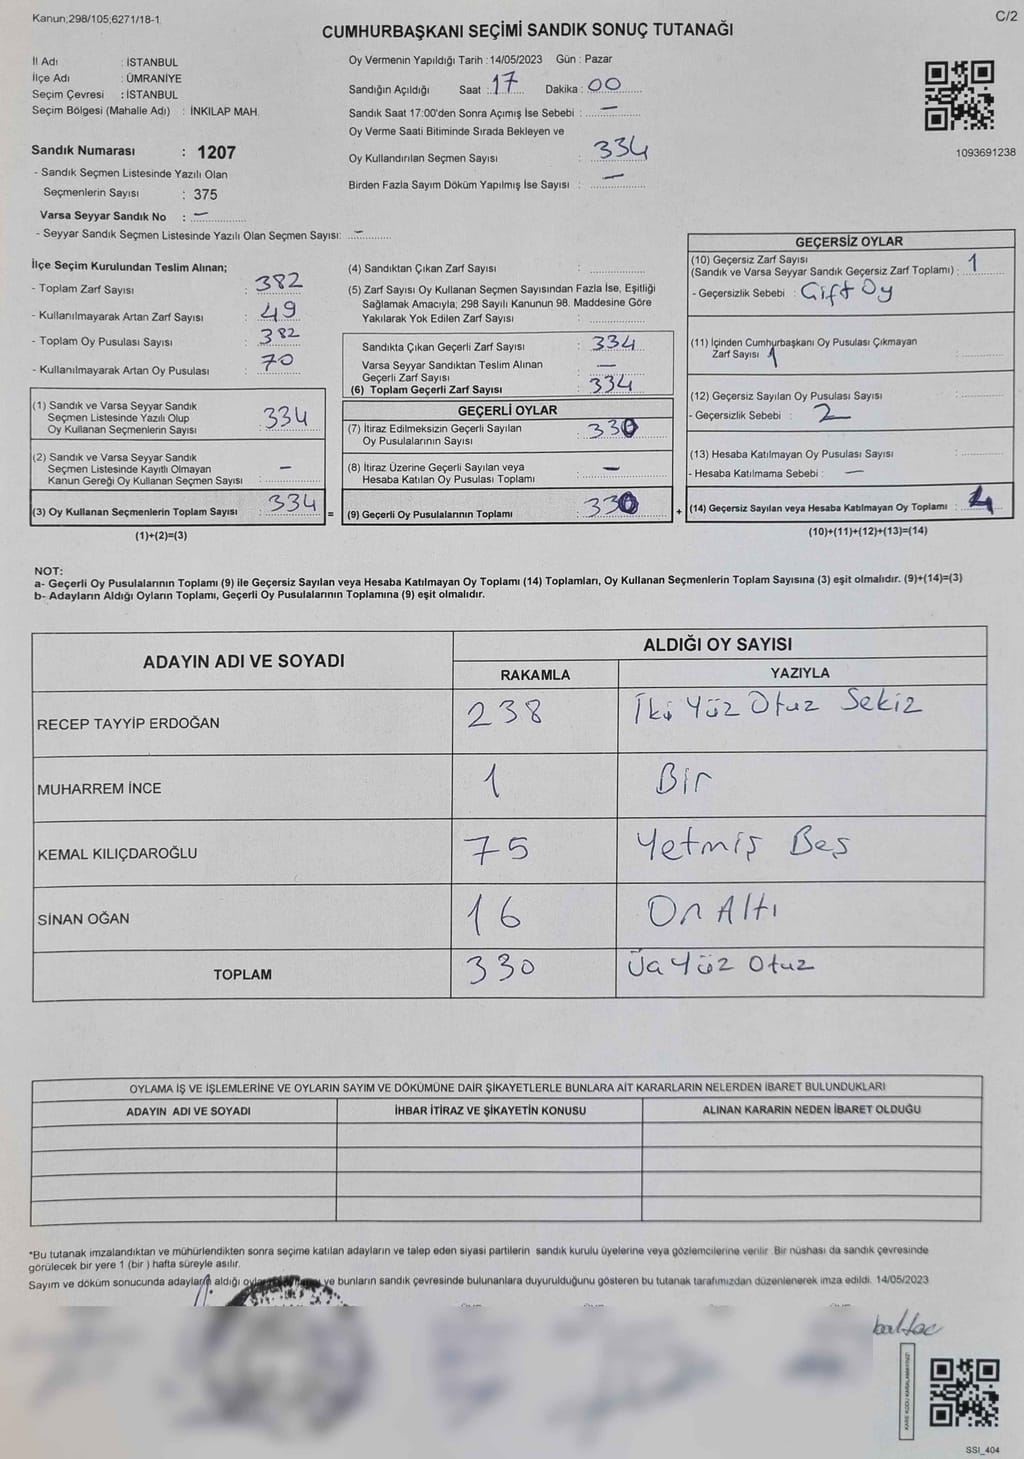 Kanun;298/105;6271/18-1
C/2
CUMHURBAŞKANI SEÇİMİ SANDIK SONUÇ TUTANAĞI
İl Adı : İSTANBUL
İlçe Adı : ÜMRANİYE
Seçim Çevresi : İSTANBUL
Seçim Bölgesi (Mahalle Adı) : İNKILAP MAH.
Sandık Numarası : 1207
- Sandık Seçmen Listesinde Yazılı Olan
Seçmenlerin Sayısı : 375
Varsa Seyyar Sandık No : —
- Seyyar Sandık Seçmen Listesinde Yazılı Olan Seçmen Sayısı: —
Oy Vermenin Yapıldığı Tarih : 14/05/2023 Gün : Pazar
Sandığın Açıldığı Saat : 17 Dakika : 00
Sandık Saat 17:00'den Sonra Açımış İse Sebebi : —
Oy Verme Saati Bitiminde Sırada Bekleyen ve
Oy Kullandırılan Seçmen Sayısı : 334
Birden Fazla Sayım Döküm Yapılmış İse Sayısı : —
1093691238
İlçe Seçim Kurulundan Teslim Alınan;
- Toplam Zarf Sayısı : 382
- Kullanılmayarak Artan Zarf Sayısı : 49
- Toplam Oy Pusulası Sayısı : 382
- Kullanılmayarak Artan Oy Pusulası : 70
(1) Sandık ve Varsa Seyyar Sandık
Seçmen Listesinde Yazılı Olup
Oy Kullanan Seçmenlerin Sayısı : 334
(2) Sandık ve Varsa Seyyar Sandık
Seçmen Listesinde Kayıtlı Olmayan
Kanun Gereği Oy Kullanan Seçmen Sayısı : —
(3) Oy Kullanan Seçmenlerin Toplam Sayısı : 334 =
(1)+(2)=(3)
(4) Sandıktan Çıkan Zarf Sayısı :
(5) Zarf Sayısı Oy Kullanan Seçmen Sayısından Fazla İse, Eşitliği
Sağlamak Amacıyla; 298 Sayılı Kanunun 98. Maddesine Göre
Yakılarak Yok Edilen Zarf Sayısı :
Sandıkta Çıkan Geçerli Zarf Sayısı : 334
Varsa Seyyar Sandıktan Teslim Alınan
Geçerli Zarf Sayısı : —
(6) Toplam Geçerli Zarf Sayısı : 334
GEÇERLİ OYLAR
(7) İtiraz Edilmeksizin Geçerli Sayılan
Oy Pusulalarının Sayısı : 330
(8) İtiraz Üzerine Geçerli Sayılan veya
Hesaba Katılan Oy Pusulası Toplamı : —
(9) Geçerli Oy Pusulalarının Toplamı : 330 +
GEÇERSİZ OYLAR
(10) Geçersiz Zarf Sayısı
(Sandık ve Varsa Seyyar Sandık Geçersiz Zarf Toplamı) : 1
- Geçersizlik Sebebi : Çift Oy
(11) İçinden Cumhurbaşkanı Oy Pusulası Çıkmayan
Zarf Sayısı 1 :
(12) Geçersiz Sayılan Oy Pusulası Sayısı :
- Geçersizlik Sebebi : 2
(13) Hesaba Katılmayan Oy Pusulası Sayısı :
- Hesaba Katılmama Sebebi : —
(14) Geçersiz Sayılan veya Hesaba Katılmayan Oy Toplamı : 4
(10)+(11)+(12)+(13)=(14)
NOT:
a- Geçerli Oy Pusulalarının Toplamı (9) ile Geçersiz Sayılan veya Hesaba Katılmayan Oy Toplamı (14) Toplamları, Oy Kullanan Seçmenlerin Toplam Sayısına (3) eşit olmalıdır. (9)+(14)=(3)
b- Adayların Aldığı Oyların Toplamı, Geçerli Oy Pusulalarının Toplamına (9) eşit olmalıdır.
ADAYIN ADI VE SOYADI ALDIĞI OY SAYISI
RAKAMLA YAZIYLA
RECEP TAYYİP ERDOĞAN 238 İki Yüz Otuz Sekiz
MUHARREM İNCE 1 Bir
KEMAL KILIÇDAROĞLU 75 Yetmiş Beş
SİNAN OĞAN 16 On Altı
TOPLAM 330 Üç Yüz Otuz
OYLAMA İŞ VE İŞLEMLERİNE VE OYLARIN SAYIM VE DÖKÜMÜNE DAİR ŞİKAYETLERLE BUNLARA AİT KARARLARIN NELERDEN İBARET BULUNDUKLARI
ADAYIN ADI VE SOYADI İHBAR İTİRAZ VE ŞİKAYETİN KONUSU ALINAN KARARIN NEDEN İBARET OLDUĞU
*Bu tutanak imzalandıktan ve mühürlendikten sonra seçime katılan adayların ve talep eden siyasi partilerin sandık kurulu üyelerine veya gözlemcilerine verilir. Bir nüshası da sandık çevresinde
görülecek bir yere 1 (bir ) hafta süreyle asılır.
Sayım ve döküm sonucunda adayların aldığı ve bunların sandık çevresinde bulunanlara duyurulduğunu gösteren bu tutanak tarafımızdan düzenlenerek imza edildi. 14/05/2023
SSI_404